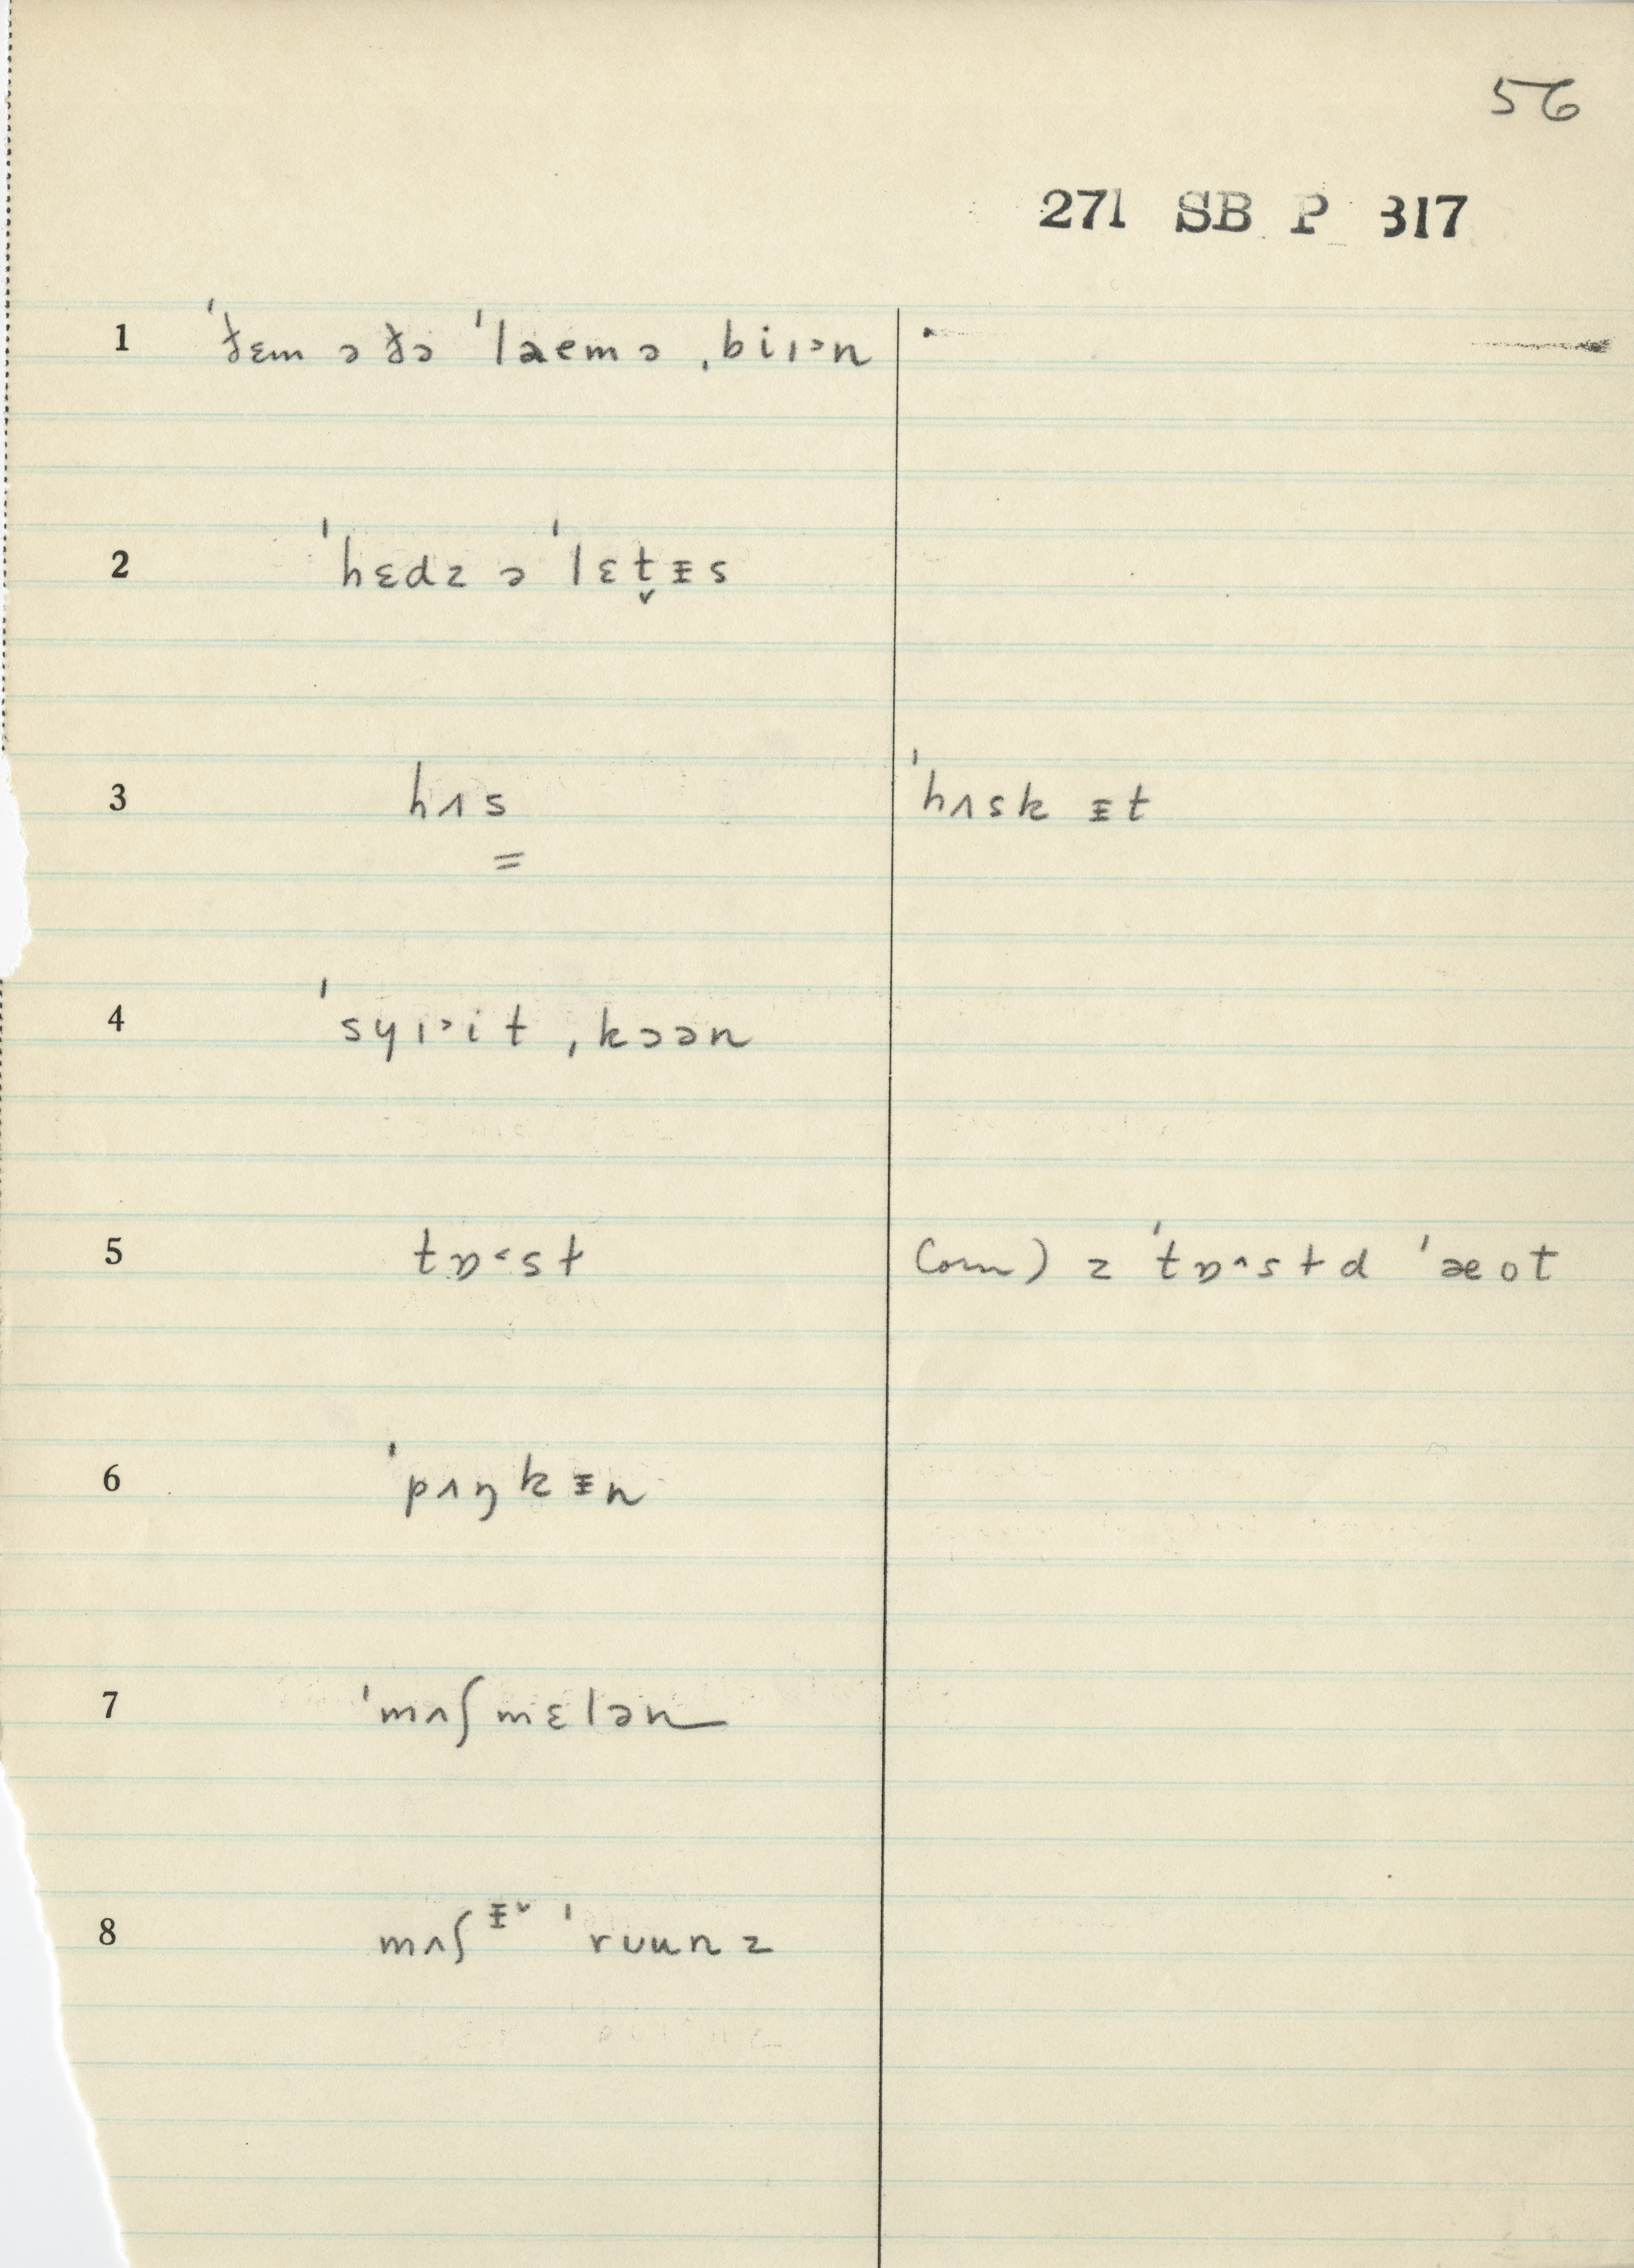 56
271 SB P 317
1 ˈðɛm ə ðə ˈlaemə ˌbiɪᵊn
2 ˈhɛdz ə ˈlɛt̬ᵻs
3 hʌs ˈhʌsk ᵻt
4 ˈsyɪᵊit ˌkɔən
5 tɒ˂st (corn) z ˈtɒ^std ˈæot
6 ˈpʌŋkᵻn
7 ˈmʌʃmɛlən
8 mʌʃᵻˇ ˈruunz